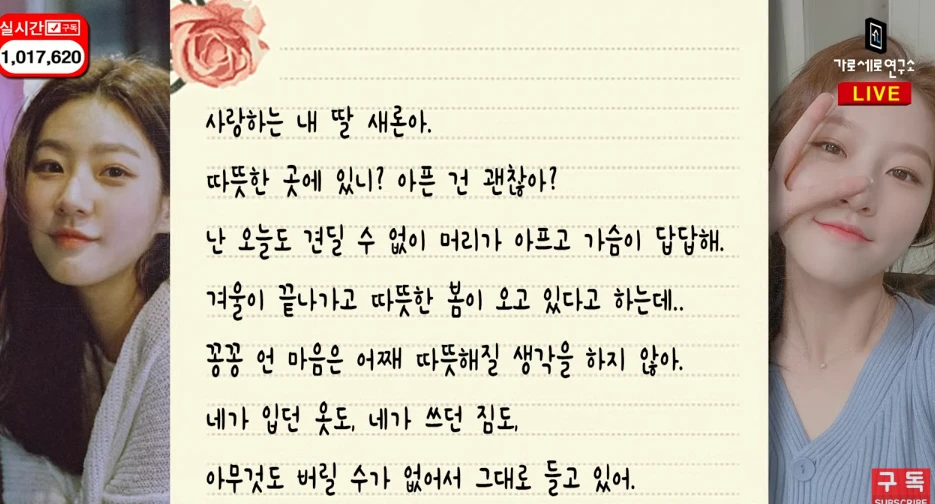 실시간 구독
1,017,620
가로세로연구소
LIVE
사랑하는 내 딸 새론아.
따뜻한 곳에 있니? 아픈 건 괜찮아?
난 오늘도 견딜 수 없이 머리가 아프고 가슴이 답답해.
겨울이 끝나가고 따뜻한 봄이 오고 있다고 하는데..
꽁꽁 언 마음은 어째 따뜻해질 생각을 하지 않아.
네가 입던 옷도, 네가 쓰던 짐도,
아무것도 버릴 수가 없어서 그대로 들고 있어.
구독
SUBSCRIBE